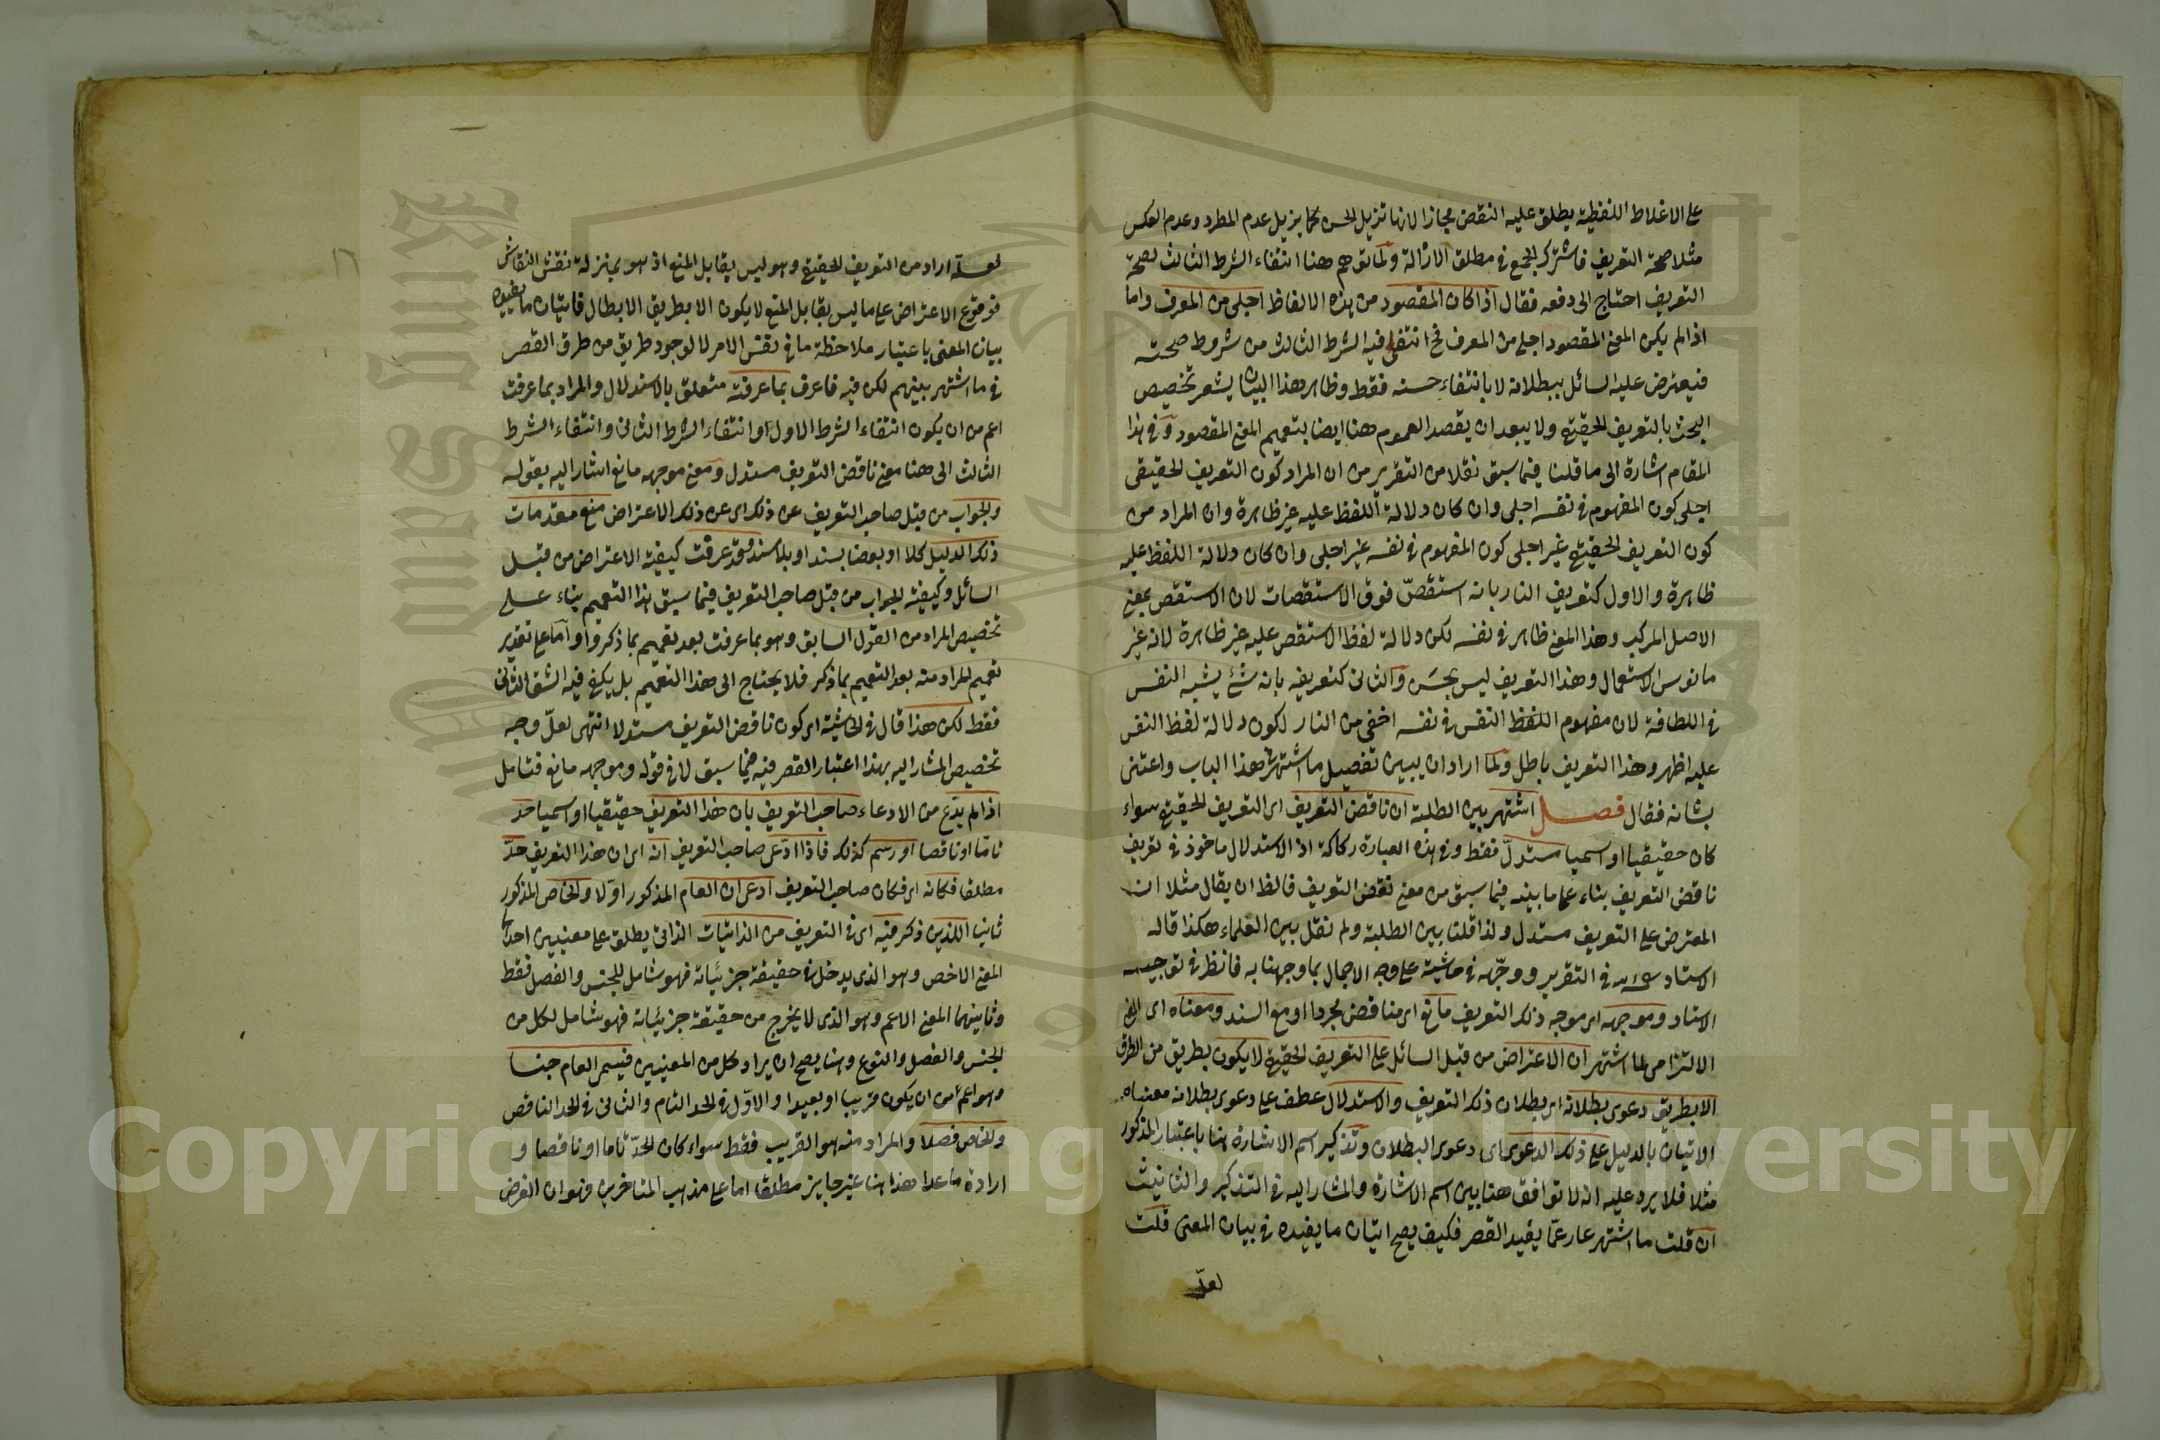 على الاغلاط اللفظية يطلق عليه النقض مجازا لانها تزيل الحسن كما يزيل عدم المطرد وعدم العكس
مثلا صحة التعريف فاشترك الجميع في مطلق الازالة ولما توهم هنا انتفاء الشرط الثالث لصحة
التعريف احتاج الى دفعه فقال اذا كان المقصود من هذه الالفاظ اجلى من المعرف واما
اذا لم يكن المعنى المقصود اجلى من المعرف فح انتفى فيه الشرط الثالث من شروط صحته
فيعترض عليه السائل ببطلانه لا بانتفاء حسنه فقط وظاهر هذا البيان يشعر تخصيص
البحث بالتعريف الحقيقي ولا يبعد ان يقصد العموم هنا ايضا بتعميم المعنى المقصود وفي هذا
المقام اشارة الى ما قلنا فيما سبق نقلا من التقرير من ان المراد كون التعريف الحقيقي
اجلى كون المفهوم في نفسه اجلى وان كان دلالة اللفظ عليه غير ظاهرة وان المراد من
كون التعريف الحقيقي غير اجلى كون المفهوم في نفسه غير اجلى وان كان دلالة اللفظ عليه
ظاهرة والاول كتعريف النار بانه استقص فوق الاستقصات لان الاستقص بمعنى
الاصل المركب وهذا المعنى ظاهر في نفسه لكن دلالة لفظ الاستقص عليه غير ظاهرة لانه غير
مانوس الاستعمال وهذا التعريف ليس بحسن والثاني كتعريفه بانه شئ يشبه النفس
في اللطافة لان مفهوم اللفظ النفس في نفسه اخفى من النار لكون دلالة لفظ النفس
عليه اظهر وهذا التعريف باطل ولما اراد ان يبين تفصيل ما اشتهر في هذا الباب واعتنى
بشانه فقال فصل اشتهر بين الطلبة ان ناقض التعريف اى التعريف الحقيقي سواء
كان حقيقيا او اسميا مستدل فقط وفي هذه العبارة ركاكة اذ الاستدلال ماخوذ في تعريف
ناقض التعريف بناء على ما بينه فيما سبق من معنى نقض التعريف فالظ ان يقال مثلا ان
المعترض على التعريف مستدل ولذا قلنا بين الطلبة ولم نقل بين العلماء هكذا قاله
الاستاد في التقرير ووجهه في حاشية على وجه الاجمال بما وجهنا به فانظر في توجيه
الاستاد وموجهه اى موجه ذلك التعريف مانع اى مناقض مجردا او مع السند ومعناه اى المعنى
الالتزامى لما اشتهر ان الاعتراض من قبل السائل على التعريف الحقيقي لا يكون بطريق من الطرق
الا بطريق دعوى بطلانه اى بطلان ذلك التعريف والاستدلال عطف على دعوى بطلانه معناه
الاتيان بالدليل على ذلك الدعوى اى دعوى البطلان وتذكير اسم الاشارة هنا باعتبار المذكور
مثلا فلا يرد عليه انه لا توافق هنا بين اسم الاشارة والمشار اليه في التذكير والتانيث
ان قلت ما اشتهر عار عما يفيد القصر فكيف يصح اتيان ما يفيده في بيان المعنى قلت
لعل
لعله اراد من التعريف الحقيقي وهو ليس يقابل المنع اذ هو بمنزلة نقش النقاش
فوقوع الاعتراض على ما ليس يقابل المنع لا يكون الا بطريق الابطال فاتيان ما يفيده
بيان المعنى باعتبار ملاحظة ما في نفس الامر لا لوجود طريق من طرق القصر
في ما اشتهر بينهم لكن فيه فاعرف بما عرفته متعلق بالاستدلال والمراد بما عرفت
اعم من ان يكون انتفاء الشرط الاول او انتفاء الشرط الثاني وانتفاء الشرط
الثالث الى هنا معنى ناقض التعريف مستدل ومعنى موجهه مانع اشار اليه بقوله
والجواب من قبل صاحب التعريف عن ذلك اى عن ذلك الاعتراض منع مقدمات
ذلك الدليل كلا او بعضا بسند او بلا سند وقد عرفت كيفية الاعتراض من قبل
السائل وكيفية الجواب من قبل صاحب التعريف فيما سبق هذا التعميم بناء على
تخصيص المراد من القول السابق وهو بما عرفت بعد تعميم بما ذكروا واما على تقدير
تعميم المراد منه بعد التعميم بما ذكر فلا يحتاج الى هذا التعميم بل يكفي فيه الشق الثاني
فقط لكن هذا قال في الحاشية اى كون ناقض التعريف مستدلا انتهى لعل وجه
تخصيص المشار اليه بهذا اعتبار القصر فيه فيما سبق لا في قوله وموجهه مانع فتامل
اذا لم يدع من الادعاء صاحب التعريف بان هذا التعريف حقيقيا او اسميا حد
تاما او ناقصا او رسم كذلك فاذا ادعى صاحب التعريف انه اى ان هذا التعريف حد
مطلقا فكانه اى فكان صاحب التعريف ادعى ان العام المذكور اولا والخاص المذكور
ثانيا اللذين ذكر فيه اى في التعريف من الذاتيات الذاتي يطلق على معنيين احدهما
المعنى الاخص وهو الذى يدخل في حقيقة جزئياته فهو شامل للجنس والفصل فقط
وثانيهما المعنى الاعم وهو الذى لا يخرج من حقيقة جزئياته فهو شامل لكل من
الجنس والفصل والنوع وهنا يصح ان يراد كل من المعنيين فيسمى العام جنسا
وهو اعم من ان يكون قريبا او بعيدا والاول في الحد التام والثاني في الحد الناقص
والخاص فصلا والمراد منه هو القريب فقط سواء كان الحد تاما او ناقصا و
ارادة ما عدا هذا هنا غير جايز مطلقا اما على مذهب المتاخرين فهو ان الغرض
Copyright © King Saud University